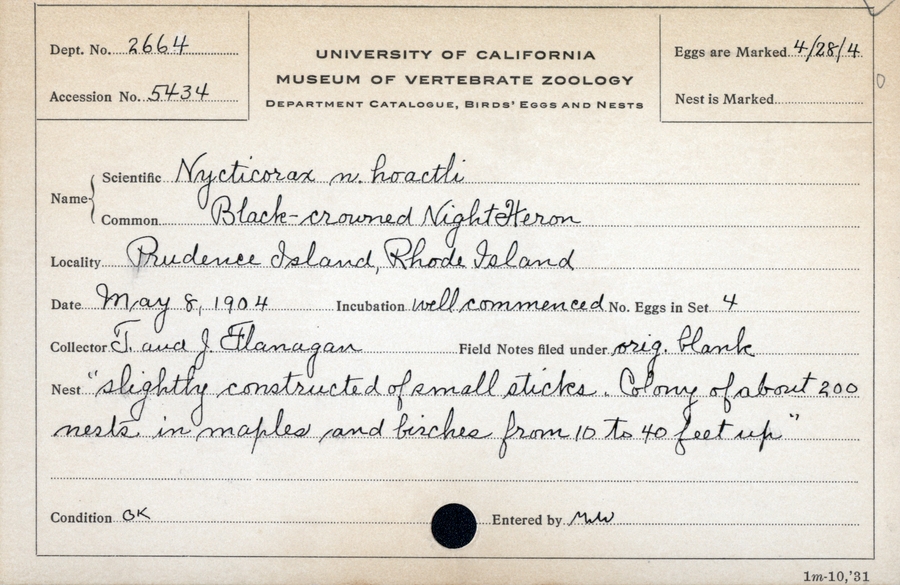 Dept. No. 2664
Accession No. 5434
UNIVERSITY OF CALIFORNIA
MUSEUM OF VERTEBRATE ZOOLOGY
DEPARTMENT CATALOGUE, BIRDS' EGGS AND NESTS
Eggs are Marked 4/28/4
Nest is Marked
Name
Scientific Nycticorax n. hoactli
Common Black-crowned Night Heron
Locality Prudence Island, Rhode Island
Date May 8, 1904 Incubation well commenced No. Eggs in Set 4
Collector T. and J. Flanagan Field Notes filed under orig. blank
Nest "slightly constructed of small sticks. Colony of about 200
nests in maples and birches from 10 to 40 feet up"
Condition OK Entered by
1m-10,'31